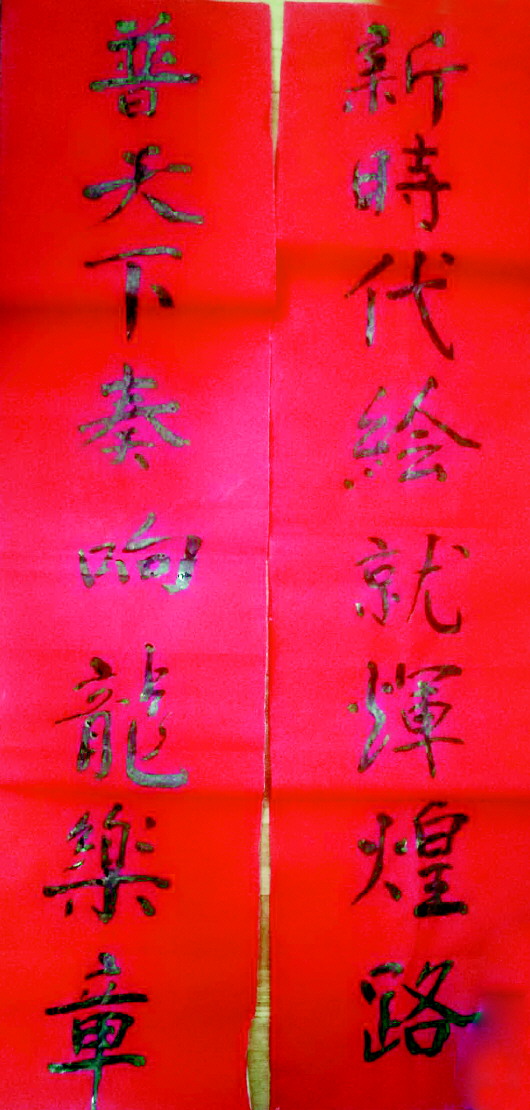 新時代绘就輝煌路
普天下奏响龍樂章